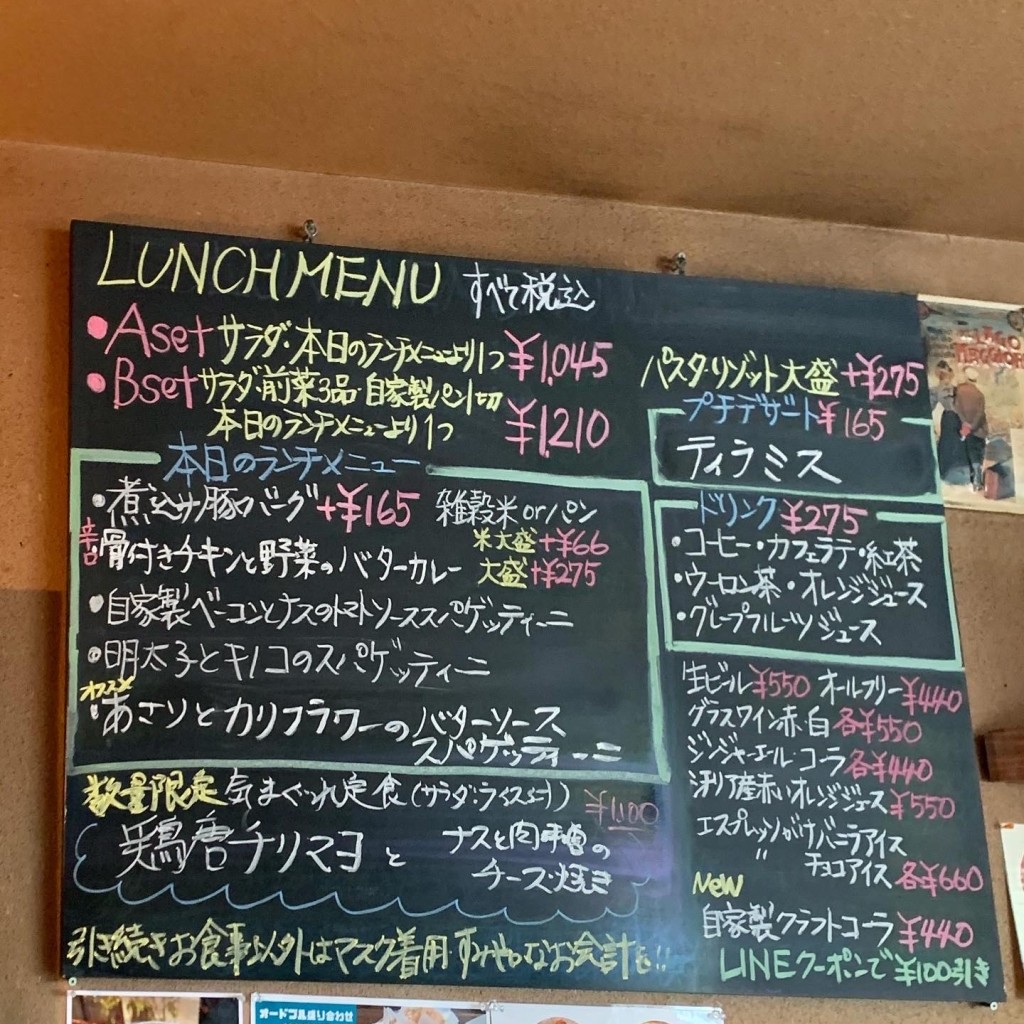 LUNCH MENU すべて税込
・Aset サラダ・本日のランチメニューより1つ ¥1,045
・Bset サラダ・前菜3品・自家製パン1切
本日のランチメニューより1つ ¥1,210
本日のランチメニュー
・煮込み豚バーグ+¥165 雑穀米orパン
米大盛+¥66
辛口
・骨付きチキンと野菜のバターカレー 大盛+¥275
・自家製ベーコンとナスのトマトソーススパゲッティーニ
・明太子とキノコのスパゲッティーニ
オススメ
・あさりとカリフラワーのバターソース
スパゲッティーニ
数量限定 気まぐれ定食(サラダ・ライス付) ¥1,100
鶏唐チリマヨと
ナスと肉味噌の
チーズ焼き
引き続きお食事以外はマスク着用 すみやかなお会計を!!
パスタ・リゾット大盛+¥275
プチデザート¥165
ティラミス
ドリンク¥275
・コーヒー・カフェラテ・紅茶
・ウーロン茶・オレンジジュース
・グレープフルーツジュース
生ビール¥550 オールフリー¥440
グラスワイン赤・白 各¥550
ジンジャーエール・コーラ 各¥440
シチリア産赤いオレンジジュース¥550
エスプレッソがけバニラアイス
〃 チョコアイス 各¥660
New
自家製クラフトコーラ¥440
LINEクーポンで¥100引き
オードブル盛り合わせ